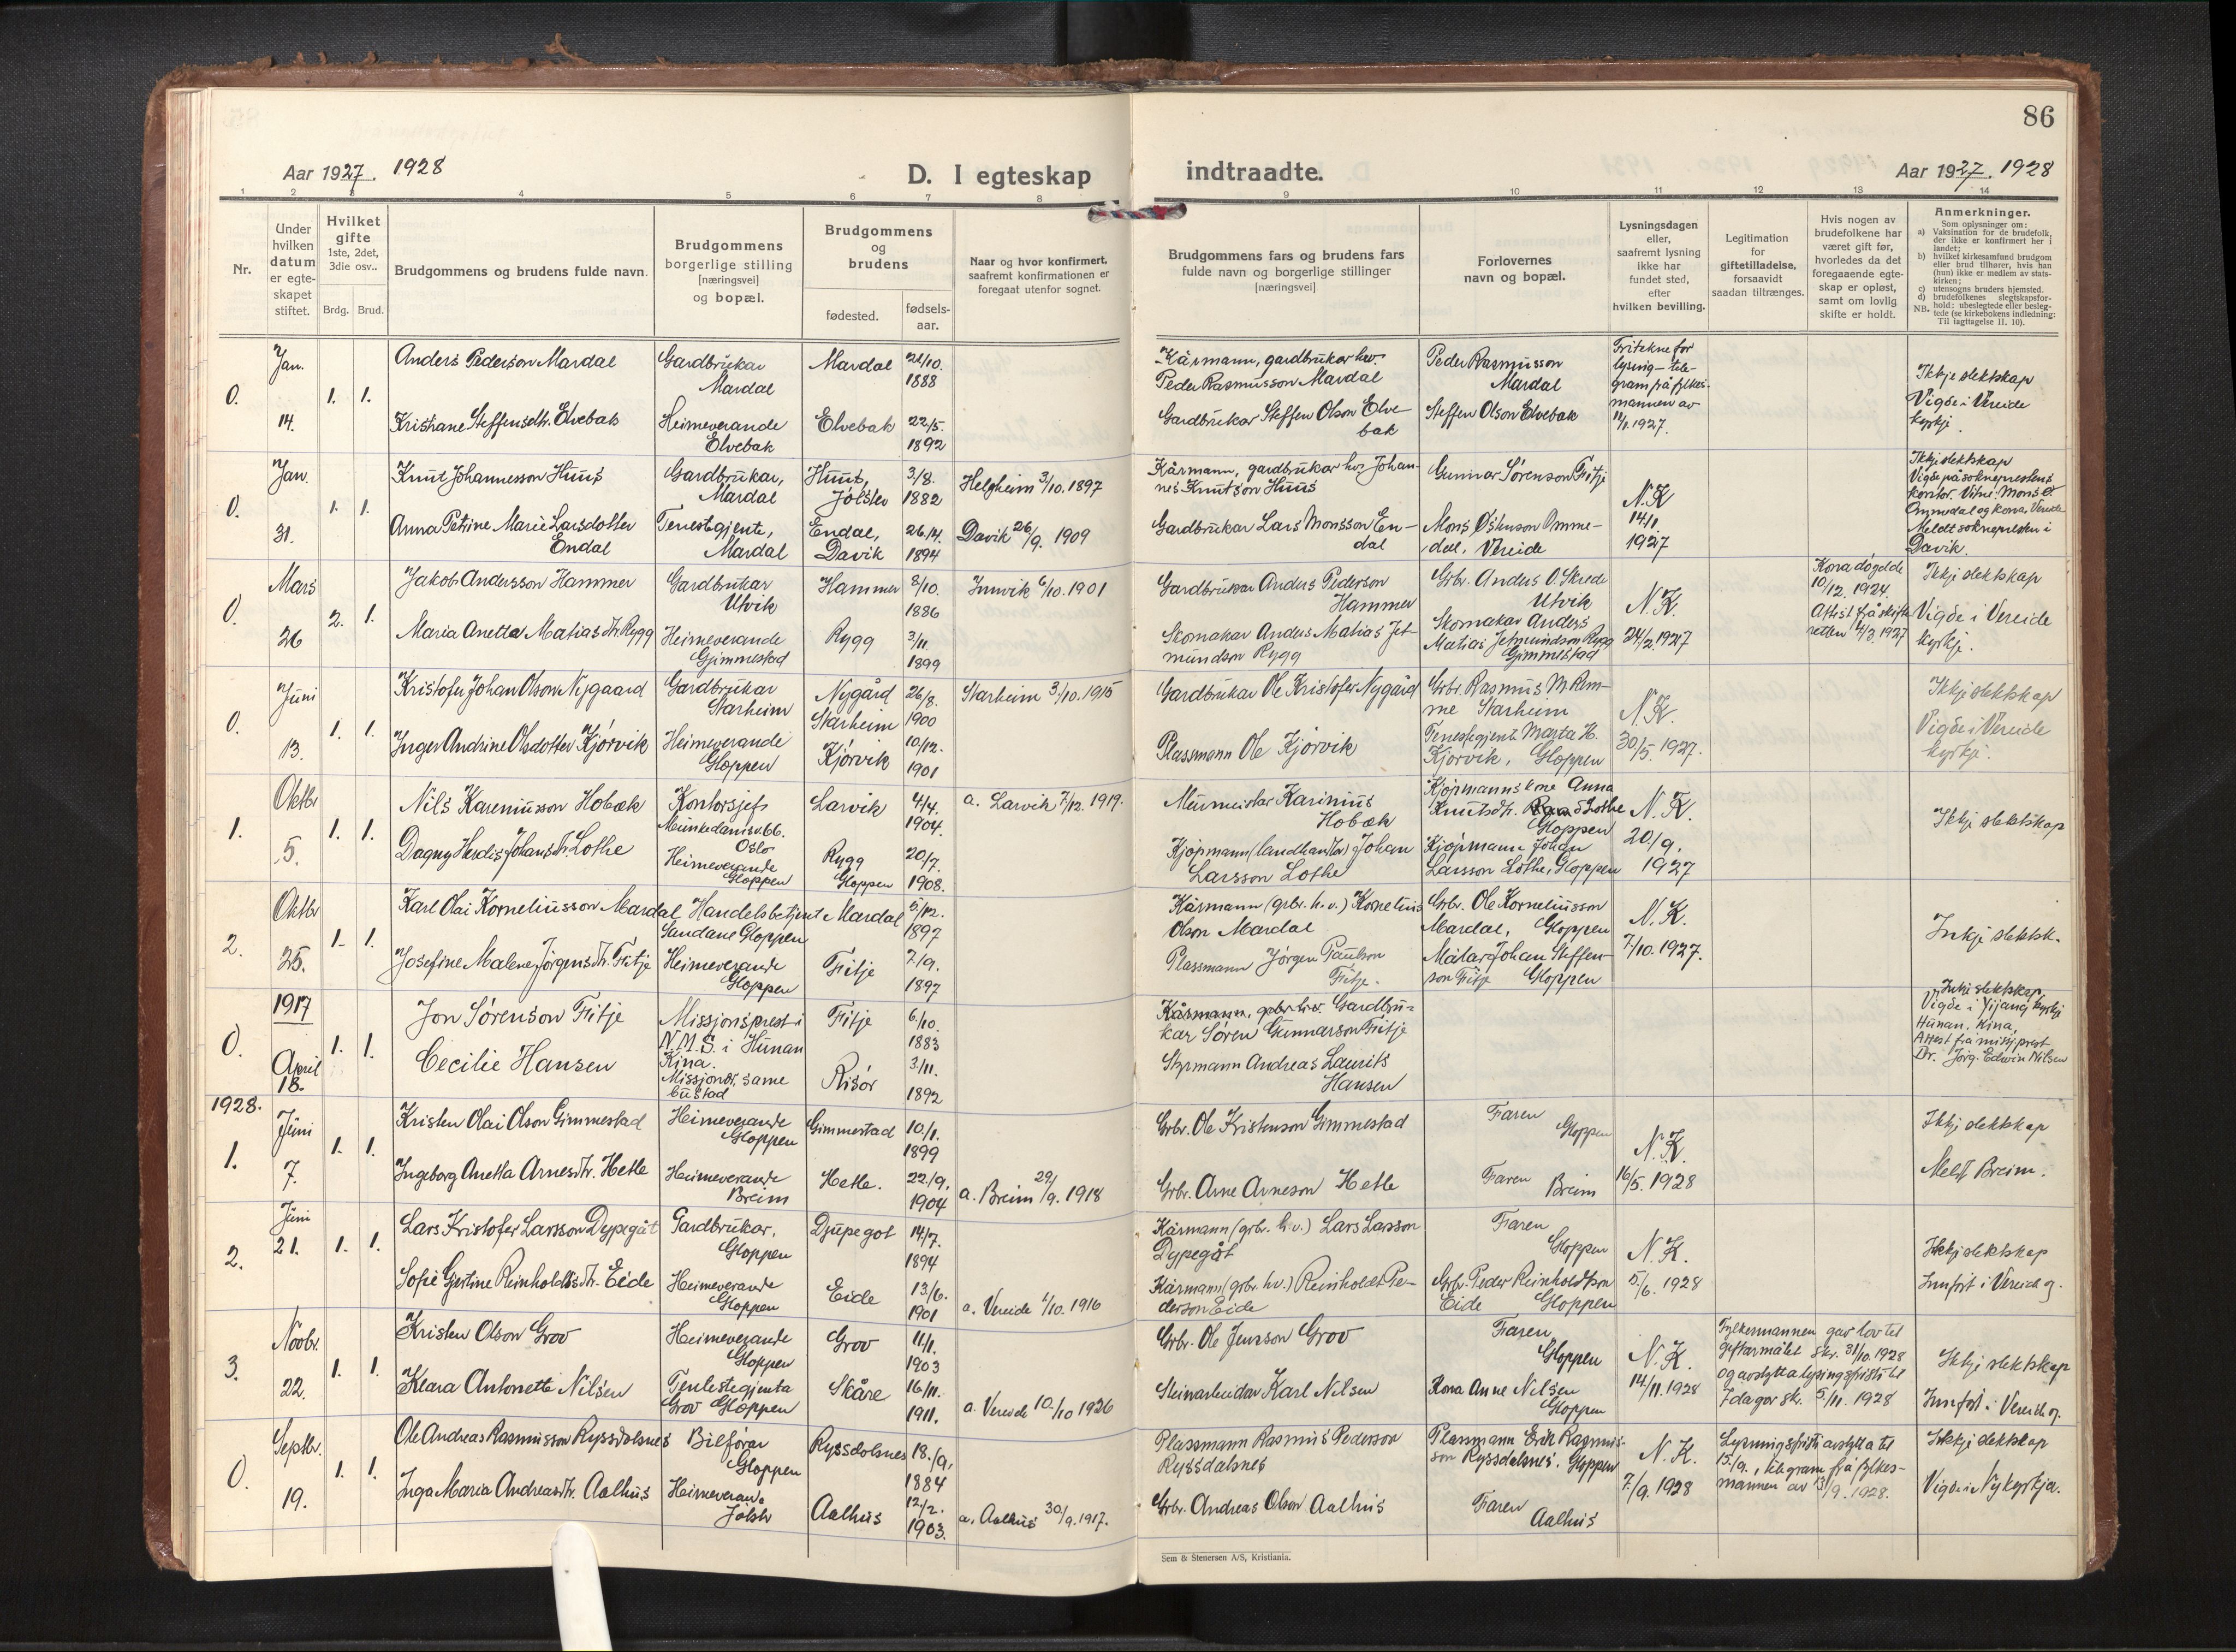 86
Aar 1927. 1928
D. I egteskap
indtraadte.
Aar 1927. 1928
1 2 3 4 5 6 7 8 9 10 11 12 13 14
Nr.
Under
hvilken
datum
er egte-
skapet
stiftet.
Hvilket
gifte
1ste, 2det,
3die osv..
Brdg. Brud.
Brudgommens og brudens fulde navn.
Brudgommens
borgerlige stilling
[næringsvei]
og bopæl.
Brudgommens
og
brudens
fødested.
fødsels-
aar.
Naar og hvor konfirmert,
saafremt konfirmationen er
foregaat utenfor sognet.
Brudgommens fars og brudens fars
fulde navn og borgerlige stillinger
[næringsvei]
Forlovernes
navn og bopæl.
Lysningsdagen
eller,
saafremt lysning
ikke har
fundet sted,
efter
hvilken bevilling.
Legitimation
for
giftetilladelse,
forsaavidt
saadan tiltrænges.
Hvis nogen av
brudefolkene har
været gift før,
hvorledes da det
foregaaende egte-
skap er opløst,
samt om lovlig
skifte er holdt.
Anmerkninger.
Som oplysninger om:
a) Vaksination for de brudefolk,
der ikke er konfirmert her i
landet;
b) hvilket kirkesamfund brudgom
eller brud tilhører, hvis han
(hun) ikke er medlem av stats-
kirken;
c) utensogns bruders hjemsted.
d) brudefolkenes slegtskapsfor-
NB. hold: ubeslegtede eller besleg-
tede (se kirkebokens indledning:
Til iagttagelse II. 10).
0.
Jan.
14.
1. 1.
Anders Pederson Mardal
Kristiane Steffensdtr. Elvebak
Gardbrukar
Mardal
Heimeverande
Elvebak
Mardal
Elvebak
21/10.
1888
22/5.
1892
Kårmann, gardbrukar hev
Peder Rasmusson Mardal
Gardbrukar Steffen Olson Elve-
bak
Peder Rasmusson
Mardal
Steffen Olson Elvebak
Fritekne for
lysing – tele-
gram frå fylkes-
mannen av
11/1. 1927.
Ikkje slektskap
Vigde i Vereide
kyrkje.
0.
Jan.
31.
1. 1.
Knut Johannesson Huus
Anna Petrine Marie Larsdotter
Endal
Gardbrukar,
Mardal
Tenestgjente,
Mardal
Huus,
Jølster
Endal,
Davik
3/8.
1882
26/4.
1894
Helgheim 3/10. 1897
Davik 26/9. 1909
Kårmann, gardbrukar hev Johan-
nes Knutson Huus
Gardbrukar Lars Monsson En-
dal
Gunnar Sørenson Fitje
Mons Østenson Omme-
dal, Vereide
N.K
14/1.
1927
Ikkje slektskap
Vigde på sokneprestens
kontor. Vitne: Mons Ø.
Ommedal og kona, Vereide
Meldt soknepresten i
Davik.
0.
Mars
26
2. 1.
Jakob Andersson Hammer
Maria Anetta Matiasdtr. Rygg
Gardbrukar
Utvik
Heimeverande
Gimmestad
Hammer
Rygg
8/10.
1886
3/11
1899
Innvik 6/10. 1901
Gardbrukar Anders Pederson
Hammer
Skomakar Anders Matias Jet-
mundson Rygg
Grbr. Anders O. Skrede
Utvik
Skomakar Anders
Matias Jetmundson Rygg
Gimmestad
N.K.
24/2. 1927
Kona døydde
10/12. 1924.
Attest frå skifte-
retten 4/3. 1927
Ikkje slektskap
Vigde i Vereide
kyrkje.
0.
Juni
13.
1. 1.
Kristofer Johan Olson Nygaard
Inger Andrine Olsdotter Kjørvik
Gardbrukar
Starheim
Heimeverande
Gloppen
Nygård
Starheim
Kjørvik
26/8.
1900
10/12.
1901
Starheim 3/10. 1915
Gardbrukar Ole Kristofer Nygård
Plassmann Ole Kjørvik
Grbr Rasmus M Rem-
me Starheim
Tenestgjent Marta H.
Kjørvik, Gloppen
N.K.
30/5. 1927.
Ikkje slektskap
Vigde i Vereide
kyrkje.
1.
Oktbr
5.
1. 1.
Nils Kareniusson Hobæk
Dagny Herdis Johansdtr. Lothe
Kontorsjef
Munkedamsv. 66.
Oslo
Heimeverande
Gloppen
Larvik
Rygg
Gloppen
4/4.
1904.
20/7.
1908.
a. Larvik 7/12. 1919.
Murmeister Karinius
Hobæk
Kjøpmann (landhandlar) Johan
Larsson Lothe
Kjøpmannskone Anna
Knutsdtr. Lothe
Gloppen
Kjøpmann Johan
Larsson Lothe, Gloppen
N.K.
20/9.
1927
Ikkje slektskap
2.
Oktbr
25.
1. 1.
Karl Olai Korneliusson Mardal
Josefine Malene Jørgensdtr. Fitje
Handelsbetjent
Sandane Gloppen
Heimeverande
Gloppen
Mardal
Fitje
5/12.
1897
7/9.
1897
Kårmann (grbr. h.v.) Kornelius
Olson Mardal
Plassmann Jørgen Paulson
Fitje.
Grbr. Ole Korneliusson
Mardal, Gloppen
Målar Johan Steffen-
son Fitje Gloppen
N.K.
7/10. 1927.
Inkje slektsk.
0.
1917
April
18.
1. 1.
Jon Sørenson Fitje
Cecilie Hansen
Missjonsprest i
N.M.S. i Hunan
Kina.
Missjonær, same
bustad
Fitje
Risør
6/10.
1883
3/11.
1892
Kårmann, grbr h.v. Gardbru-
kar Søren Gunnarson Fitje
Styrmann Andreas Laurits
Hansen
Inkje slektskap
Vigde i Yiyang kyrkje
Hunan. Kina,
Attest frå misj.prest
Dr. Jørg. Edwin Nilsen
1928.
1.
Juni
7.
1. 1.
Kristen Olai Olson Gimmestad
Ingeborg Anetta Arnesdtr. Hetle
Heimeverande
Gloppen
Heimeverande
Breim
Gimmestad
Hetle.
10/1.
1899
22/9.
1904
a. Breim 29/9. 1918
Grbr. Ole Kristenson Gimmestad
Grbr. Arne Arneson Hetle
Faren
Gloppen
Faren
Breim
N.K.
16/5. 1928
Ikkje slektskap
Meldt Breim.
2.
Juni
21.
1. 1.
Lars Kristofer Larsson Dypegåt
Sofie Gjertine Reinholdtsdtr. Eide
Gardbrukar,
Gloppen
Heimeverande
Gloppen
Djupegot
Eide
14/7.
1894
13/6.
1901
a. Vereide 1/10. 1916
Kårmann (grbr. h.v.) Lars Larsson
Dypegåt
Kårmann (grbr. hv.) Reinholdt Pe-
derson Eide
Faren
Gloppen
Grbr. Peder Reinholdtson
Eide Gloppen
N.K.
5/6. 1928
Ikkje slektskap
Innført i Vereide og.
3.
Novbr.
22.
1. 1.
Kristen Olson Grov
Klara Antonette Nilsen
Heimeverande
Gloppen
Tenestegjenta
Grov Gloppen
Grov
Skåre
11/1.
1903
16/11.
1911.
a. Vereide 10/10 1926
Grbr. Ole Jensson Grov
Steinarbeidar Karl Nilsen
Faren
Gloppen
Kona Anne Nilsen
Gloppen
N.K.
14/11. 1928
Fylkesmannen gav lov til
giftarmålet skr. 31/10. 1928
og avstytta lysingsfristi til
7 dagar skr. 5/11. 1928
Ikkje slektskap
Innført i Vereide og.
0.
Septbr.
19.
1. 1.
Ole Andreas Rasmusson Ryssdalsnes
Inga Maria Andreasdtr. Aalhus
Bilførar
Gloppen
Heimeverande
Jølster
Ryssdalsnes
Aalhus
18/9.
1884
12/2.
1903.
a. Aalhus 30/9. 1917.
Plassmann Rasmus Pederson
Ryssdalsnes
Grbr. Andreas Olson Aalhus
Plassmann Erik Rasmus-
son Ryssdalsnes. Gloppen
Faren
Aalhus
N.K.
7/9. 1928
Lysningsfristi avstytta til
15/9., telegram frå fylkes-
mannen av 13/9. 1928.
Ikkje slektskap
Vigde i Nykyrkja.
Sem & Stenersen A/S, Kristiania.